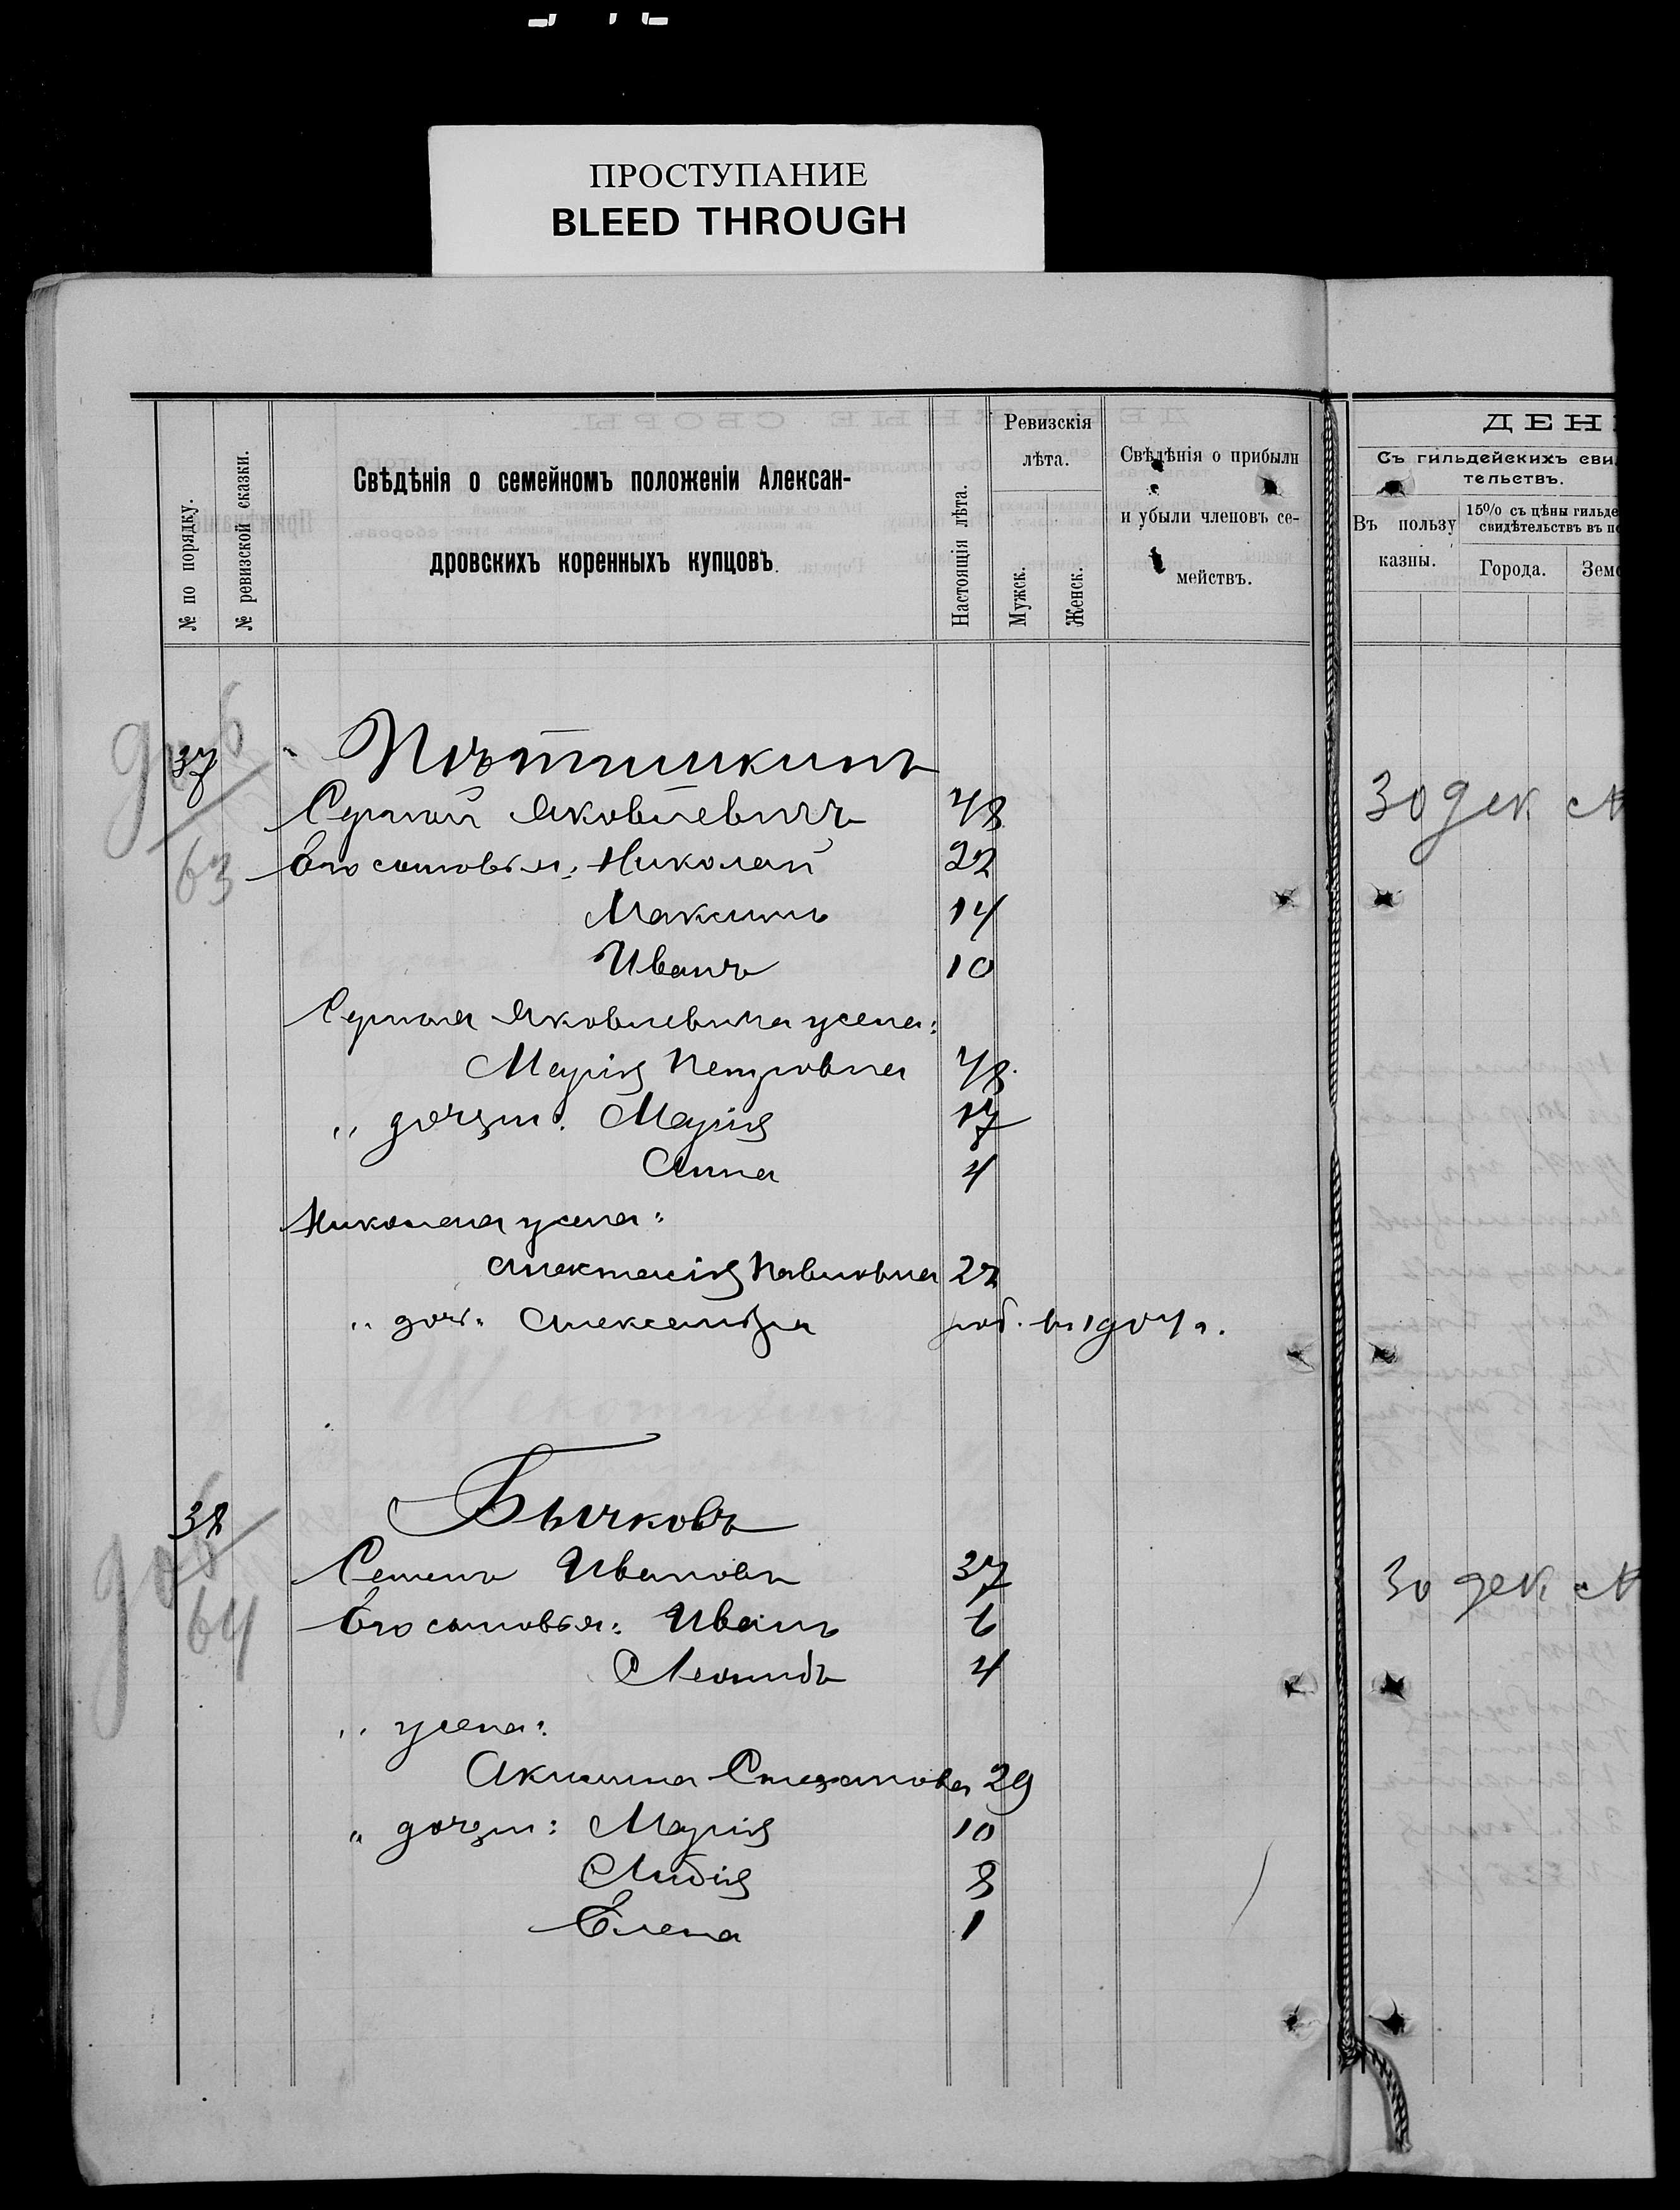 ПРОСТУПАНИЕ
BLEED THROUGH
№ по порядку.
№ ревизской сказки.
Свѣдѣнія о семейномъ положеніи Алексан-
дровскихъ коренныхъ купцовъ.
Настоящія лѣта.
Ревизскія
лѣта.
Мужск.
Женск.
Свѣдѣнія о прибыли
и убыли членовъ се-
мействъ.
ДЕН
Съ гильдейскихъ сви
тельствъ.
Въ пользу
казны.
15% съ цѣны гильде
свидѣтельствъ въ по
Города.
Земс
37
63
Пѣтишкинъ
Сергѣй Яковлевичъ 48
30 дек
Его сыновья: Николай 22
Максимъ 14
Иванъ 10
Сергѣя Яковлевича жена:
Марія Петровна 48
" дочери: Марія 17
Анна 4
Николая жена:
Анастасія Павловна 22
" дочь: Александра род. въ 1904 г.
38
64
Бычковъ
Семенъ Ивановъ 37
30 дек
Его сыновья: Иванъ 6
Леонидъ 4
" жена:
Акилина Степанова 29
" дочери: Марія 10
Лидія 8
Елена 1